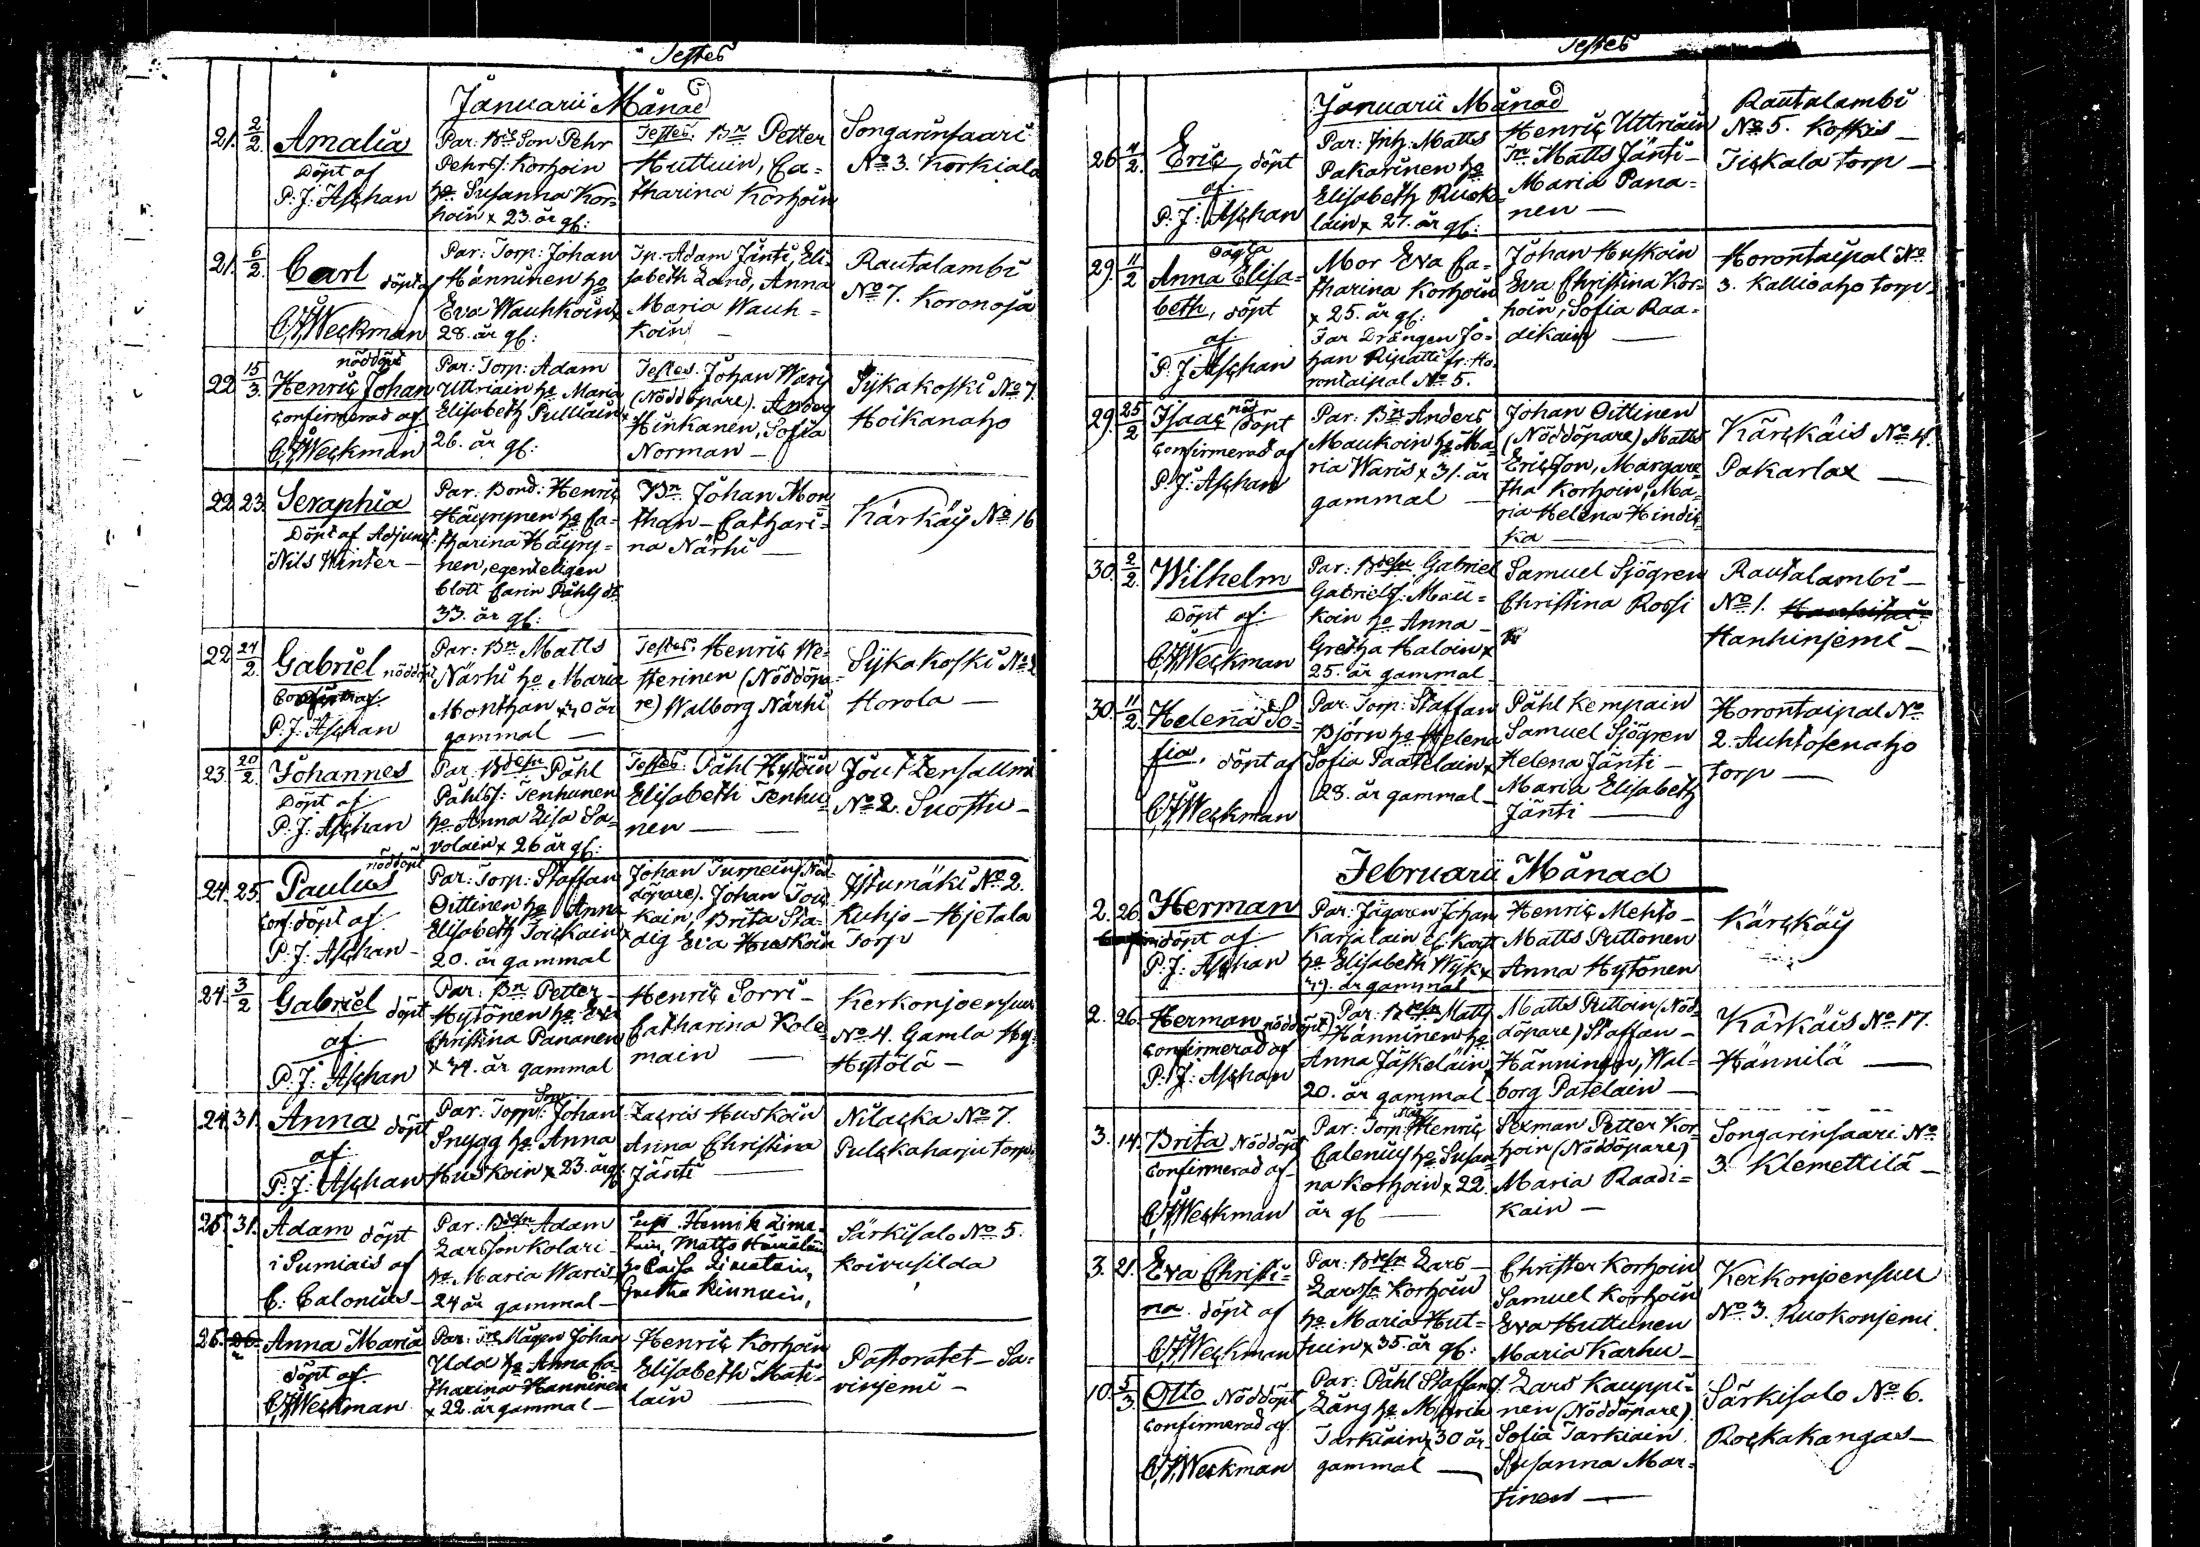 Testes
Januarii Månad
21. 2/2. Amalia
Döpt af
P: J: Aschan
Par. Bde Son Pehr
Pehrs: Korhoin
ho. Susanna Kor=
hoin x 23. år gl:
Testes. Bn Petter
Huttuin, Ca=
tharina Korhoin
Songarinsaari
No 3. Korkiala
21. 6/2. Carl döpt af
C.J. Weckman
Par: Torp: Johan
Hänninen ho
Eva Wauhkoin x
28. år gl:
Tp. Adam Jänti, Eli=
sabeth Land, Anna
Maria Wauh=
koin
Rautalambi
No 7. Koronoja
22 15/3. nöddöpt
Henric Johan
Confirmerad af
C.J. Weckman
Par: Torp: Adam
Uttriain ho Maria
Elisabeth Pulliain x
26. år gl:
Testes. Johan Waris
(Nöddöpare). Anders
Hinkanen, Sofia
Norman —
Sykäkoski No 7.
Hoikanaho
22 23. Seraphia
Döpt af Adjunct:
Nils Winter —
Par. Bond: Henric
Häyrynen ho Ca=
tharina Häyry=
nen, egenteligen
blott Carin Påhls dr
33. år gl:
Bn Johan Mon
than — Cathari=
na Närhi —
Kärkäis No 16
22 24/2. Gabriel nöddöpt
P: J: Aschan
Par: Bn Matts
Närhi ho Maria
Monthan x 40 år
gammal —
Testes: Henric We=
sterinen (Nöddöpa=
re) Walborg Närhi
Sykäkoski No 2
Horola —
23. 20/2. Johannes
Döpt af
P: J: Aschan
Par. Bdesn Påhl
Påhlss: Tenhunen
ho Anna Lisa Sa=
volain x 26 år gl:
Testes: Påhl Hytöin
Elisabeth Tenhu=
nen —
Jout Zensallmi
No 2. Suostu —
24. 25. nöddöpt
Paulus
Conf: döpt af
P: J: Aschan —
Par: Torp: Staffan
Oittinen ho Anna
Elisabeth Toickain x
20. år gammal
Johan Turpein (Nöd=
döpare). Johan Toic
kain, Brita Sta=
dig Eva Huskoin
Istumäki No 2.
Kuhjo — Hjetala
Torp
24. 3/2 Gabriel döpt
af
P: J: Aschan
Par: Bn Petter —
Hytönen ho Eva
Christina Pananen
x 44. år gammal
Henric Sorri —
Catharina Kole=
main —
Kerkonjoensuu
No 4. Gamla Hy
Hytölä —
24. 31. Anna döpt
af
P: J: Aschan
Par: Torp: Johan
Snygg ho Anna
Huskoin x 23. år gl.
Zacris Huskoin
Anna Christina
Jänti —
Nilacka No 7.
Pulckaharju torp
25 31. Adam döpt
i Sumiais af
C: Calonius —
Par: Bdesn Adam
Larsson Kolari —
ho Maria Waris x
24 år gammal —
Henrik Lima=
tain, Matts Hämäläin
ho Caisa Limatain,
Gretha Kinnuin,
Särkisalo No 5.
Koivusilda
26. 26. Anna Maria
döpt af
C.J. Weckman
Par: Johan
Ilda ho Anna Ca=
tharina Hanninen
x 22. år gammal —
Henric Korhoin
Elisabeth Mati=
lain —
Pastoratet — Sa=
vinjemi —
Testes
Januarii Månad
26 4/2. Eric döpt
af.
P: J: Aschan
Par: Inh: Matts
Pakarinen ho
Elisabeth Ruoko=
lain x 27. år gl:
Henric Uttriain
Tn Matts Jänti —
Maria Pana=
nen —
Rautalambi
No 5. Koskis —
Tickala torp —
29. 11/2 oägta
Anna Elisa=
beth, döpt
af
P: J Aschan
Mor Eva Ca=
tharina Korhoin
x 25. år gl:
Far Drängen Jo=
han Ripatti fr: Ho=
rontaipal No 5.
Johan Huskoin
Eva Christina Kor=
hoin, Sofia Raa=
dikain —
Horontaipal No
3. Kallioaho torp.
29. 25/2 Isaac nöddöpt
Confirmerad af
P: J: Aschan
Par: Bn Anders
Maukoin ho Ma=
ria Waris x 31. år
gammal —
Johan Oittinen
(Nöddöpare) Matts
Ericsson, Margare
tha Korhoin, Ma=
ria Helena Hindic=
ka —
Kärckäis No 4.
Pakarlax —
30. 2/2. Wilhelm
Döpt af
C.J. Weckman
Par: Bdesn Gabriel
Gabriels: Mau=
koin ho Anna —
Gretha Haloin x
25. år gammal
Samuel Sjögren
Christina Rossi
Rautalambi —
No 1.
Hanhinjemi —
30. 11/2. Helena So=
fia, döpt af
C.J. Weckman
Par: Torp: Staffan
Björn ho Helena
Sofia Paatelain x
28. år gammal
Påhl Kempain
Samuel Sjögren
Helena Jänti —
Maria Elisabeth
Jänti —
Horontaipal No
2. Auhtosenaho
torp —
Februarii Månad
2. 26. Herman
döpt af
P: J: Aschan
Par: Jägaren Johan
Karjalain
ho Elisabeth Wijk x
Henric Mehto —
Matts Puttonen
Anna Hytönen
Kärckäis
2. 26. Herman nöddöpt
Confirmerad af
P: J: Aschan
Par: Bdesn Matts
Hänninen ho
Anna Jäskeläin x
20. år gammal
Matts Puttoin (Nöd=
döpare) Staffan —
Hänninen, Wal=
borg Patelain —
Kärkäis No 17.
Hännilä —
3. 14. Brita Nöddöpt
Confirmerad af
C.J. Weckman
Par: Torp: Mag Henric
Calenius ho Susan
na Korhoin x 22.
år gl —
Sexman Petter Kor
hoin (Nöddöpare)
Maria Raadi=
kain —
Songarinsaari No
3. Klemettilä —
3. 21. Eva Christi=
na döpt af
C.J. Weckman
Par: Bdesn Lars —
Larss: Korhoin
ho Maria Hut=
tuin x 35. år gl:
Christer Korhoin
Samuel Korhoin
Eva Huttunen
Maria Karhu —
Kerkonjoensuu
No 3. Ruokonjemi.
10. 5/3. Otto Nöddöpt
Confirmerad af
C.J. Weckman
Par: Påhl Staffans:
Lång ho Maria
Tarkiain x 30 år
gammal —
Lars Kauppi=
nen (Nöddöpare).
Sofia Tarkiain.
Susanna Mar=
tinen —
Särkisalo No 6.
Rockakangas —